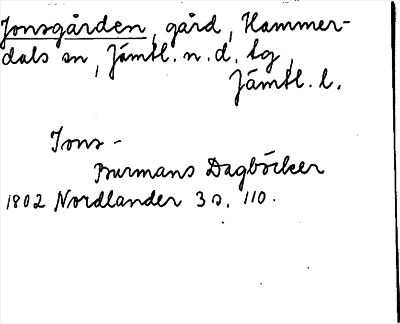 Jonsgården, gård, Hammer-
dals sn, Jämtl. n. d. tg,
Jämtl. l.
Jons-
Burmans Dagböcker
1802 Nordlander 3 s. 110.